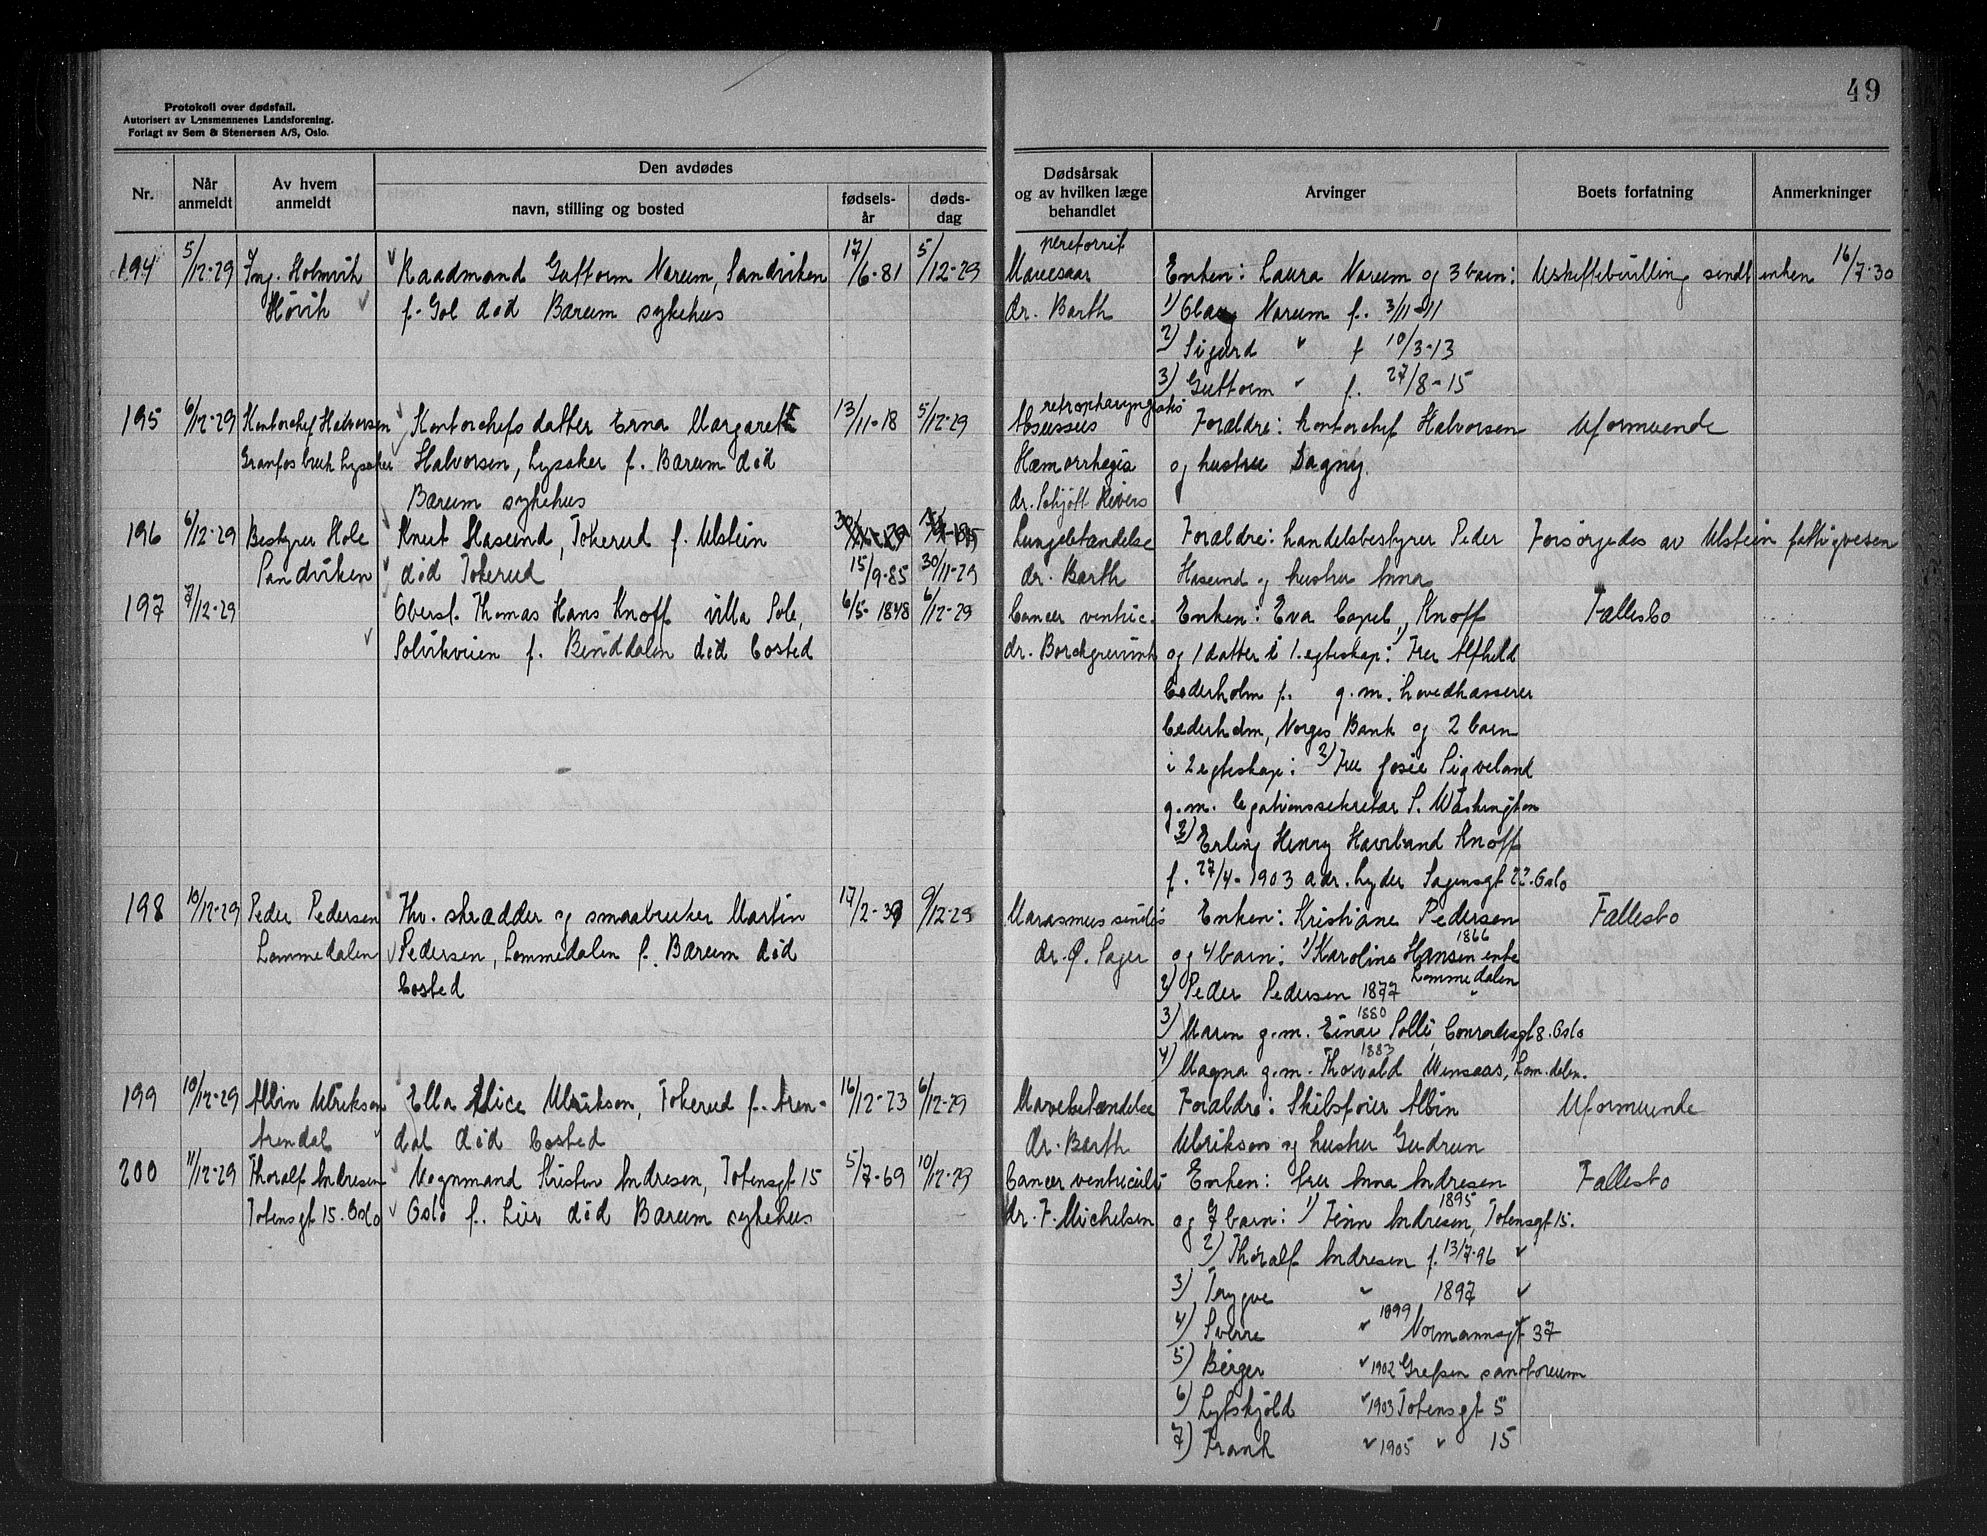 49
Protokoll over dødsfall.
Autorisert av Lensmennenes Landsforening.
Forlagt av Sem & Stenersen A/S, Oslo.
Nr. Når anmeldt Av hvem anmeldt Den avdødes navn, stilling og bosted fødsels-år døds-dag Dødsårsak og av hvilken læge behandlet Arvinger Boets forfatning Anmerkninger
194 5/12-29 Ing. Holmvik Raadmand Guttorm Narum, Sandviken 17/6-81 5/12-29 Mavesaar Enken: Laura Narum og 3 barn: Uskiftebevilling sendt enken 16/7-30
Høvik f. Gol død Bærum sykehus dr. Barth 1) Narum f. 3/11-11
2) Sigurd " f 10/3-13
3) Guttorm " f. 27/8-15
195 6/12-29 Kontorchef Halvorsen Kontorchefs datter Erna Margareth 13/11-18 5/12-29 retropharyngealis Forældre: kontorchef Halvorsen Uformuende
Granfos bruk Lysaker Halvorsen, Lysaker f. Bærum død Hæmorrhagia og hustru Dagny.
Bærum sykehus dr. Schjøtt
196 6/12-29 Bestyrer Hole Knut Haseund, Tokerud f. Ulstein Lungebetændelse Forældre: handelsbestyrer Peder Forsørgedes av Ulstein fattigvesen
Sandviken død Tokerud 15/9-85 30/11-29 dr. Barth Haseund og hustru Anna
197 7/12-29 Oberst. Thomas Hans Knoff villa Sole, 6/5-1848 6/12-29 Cancer ventric. Enken: Eva Capel, Knoff Fællesbo
Solvikveien f. Binddalen død bosted dr. Borchgrevink og 1 datter i 1. egteskap: 1) Fru Alfhild
Cederholm f. g.m. hovedkasserer
Cederholm, Norges Bank og 2 barn
i 2 egteskap: 2) Fru Josie Sigveland
g.m. legationssekretær S. Washington
3) Erling Henry Knoff
f. 27/4-1903 adr. Lyder Sagensgt 22. Oslo
198 10/12-29 Peder Pedersen Fhv. skrædder og smaabruker Martin 17/2-39 9/12-29 Marasmus senilis Enken: Kristiane Pedersen Fællesbo
Lommedalen Pedersen, Lommedalen f. Bærum død dr. Ø. Sager og 4 barn: 1) Karoline Hansen 1866 enke Lommedalen
bosted 2) Peder Pedersen 1877 "
3) Maren 1880 g.m. Einar Solli, Conradisgt 8. Oslo
4) Magna g.m. 1883 Thorvald Wensaas, Lom.dalen.
199 10/12-29 Albin Ulrikson Ella Alice Ulrikson, Tokerud f. Aren- 16/12-23 6/12-29 Mavebetændelse Forældre: Skibsfører Albin Uformuende
Arendal dal død bosted dr. Barth Ulrikson og hustru Gudrun
200 11/12-29 Thoralf Andresen Vognmand Kristen Andresen, Totensgt 15 5/7-69 10/12-29 Cancer ventriculi Enken: fru Anna Andresen Fællesbo
Totensgt 15. Oslo Oslo f. Lier død Bærum sykehus dr. F. Michelsen og 7 barn: 1) Finn Andresen 1895, Totensgt 15.
2) Thoralf Andresen f. 13/7-96 "
3) Trygve " 1897 "
4) Sverre " 1899 Normannsgt 37
5) Birger " 1902 Grefsen sanatorium
6) Lyfskjold " 1903 Totensgt 5
7) Frank " 1905 " 15